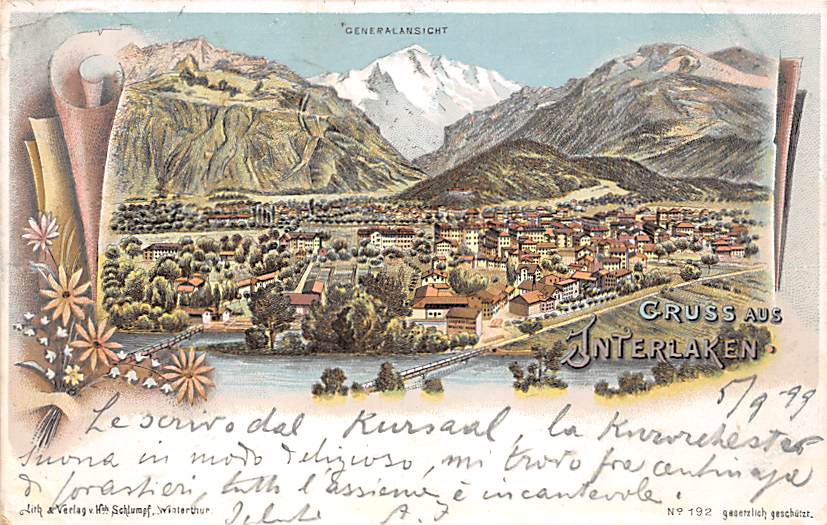 GENERALANSICHT
GRUSS AUS
INTERLAKEN.
5/9 99
Le scrivo dal Kursaal, la Kurorchester
suona in modo delizioso, mi trovo fra centinaja
di forastieri, tutto l'assieme è incantevole.
Lith & Verlag v. Hch Schlumpf, Winterthur.
Nº 192 gesetzlich geschützt.
Salute A. F